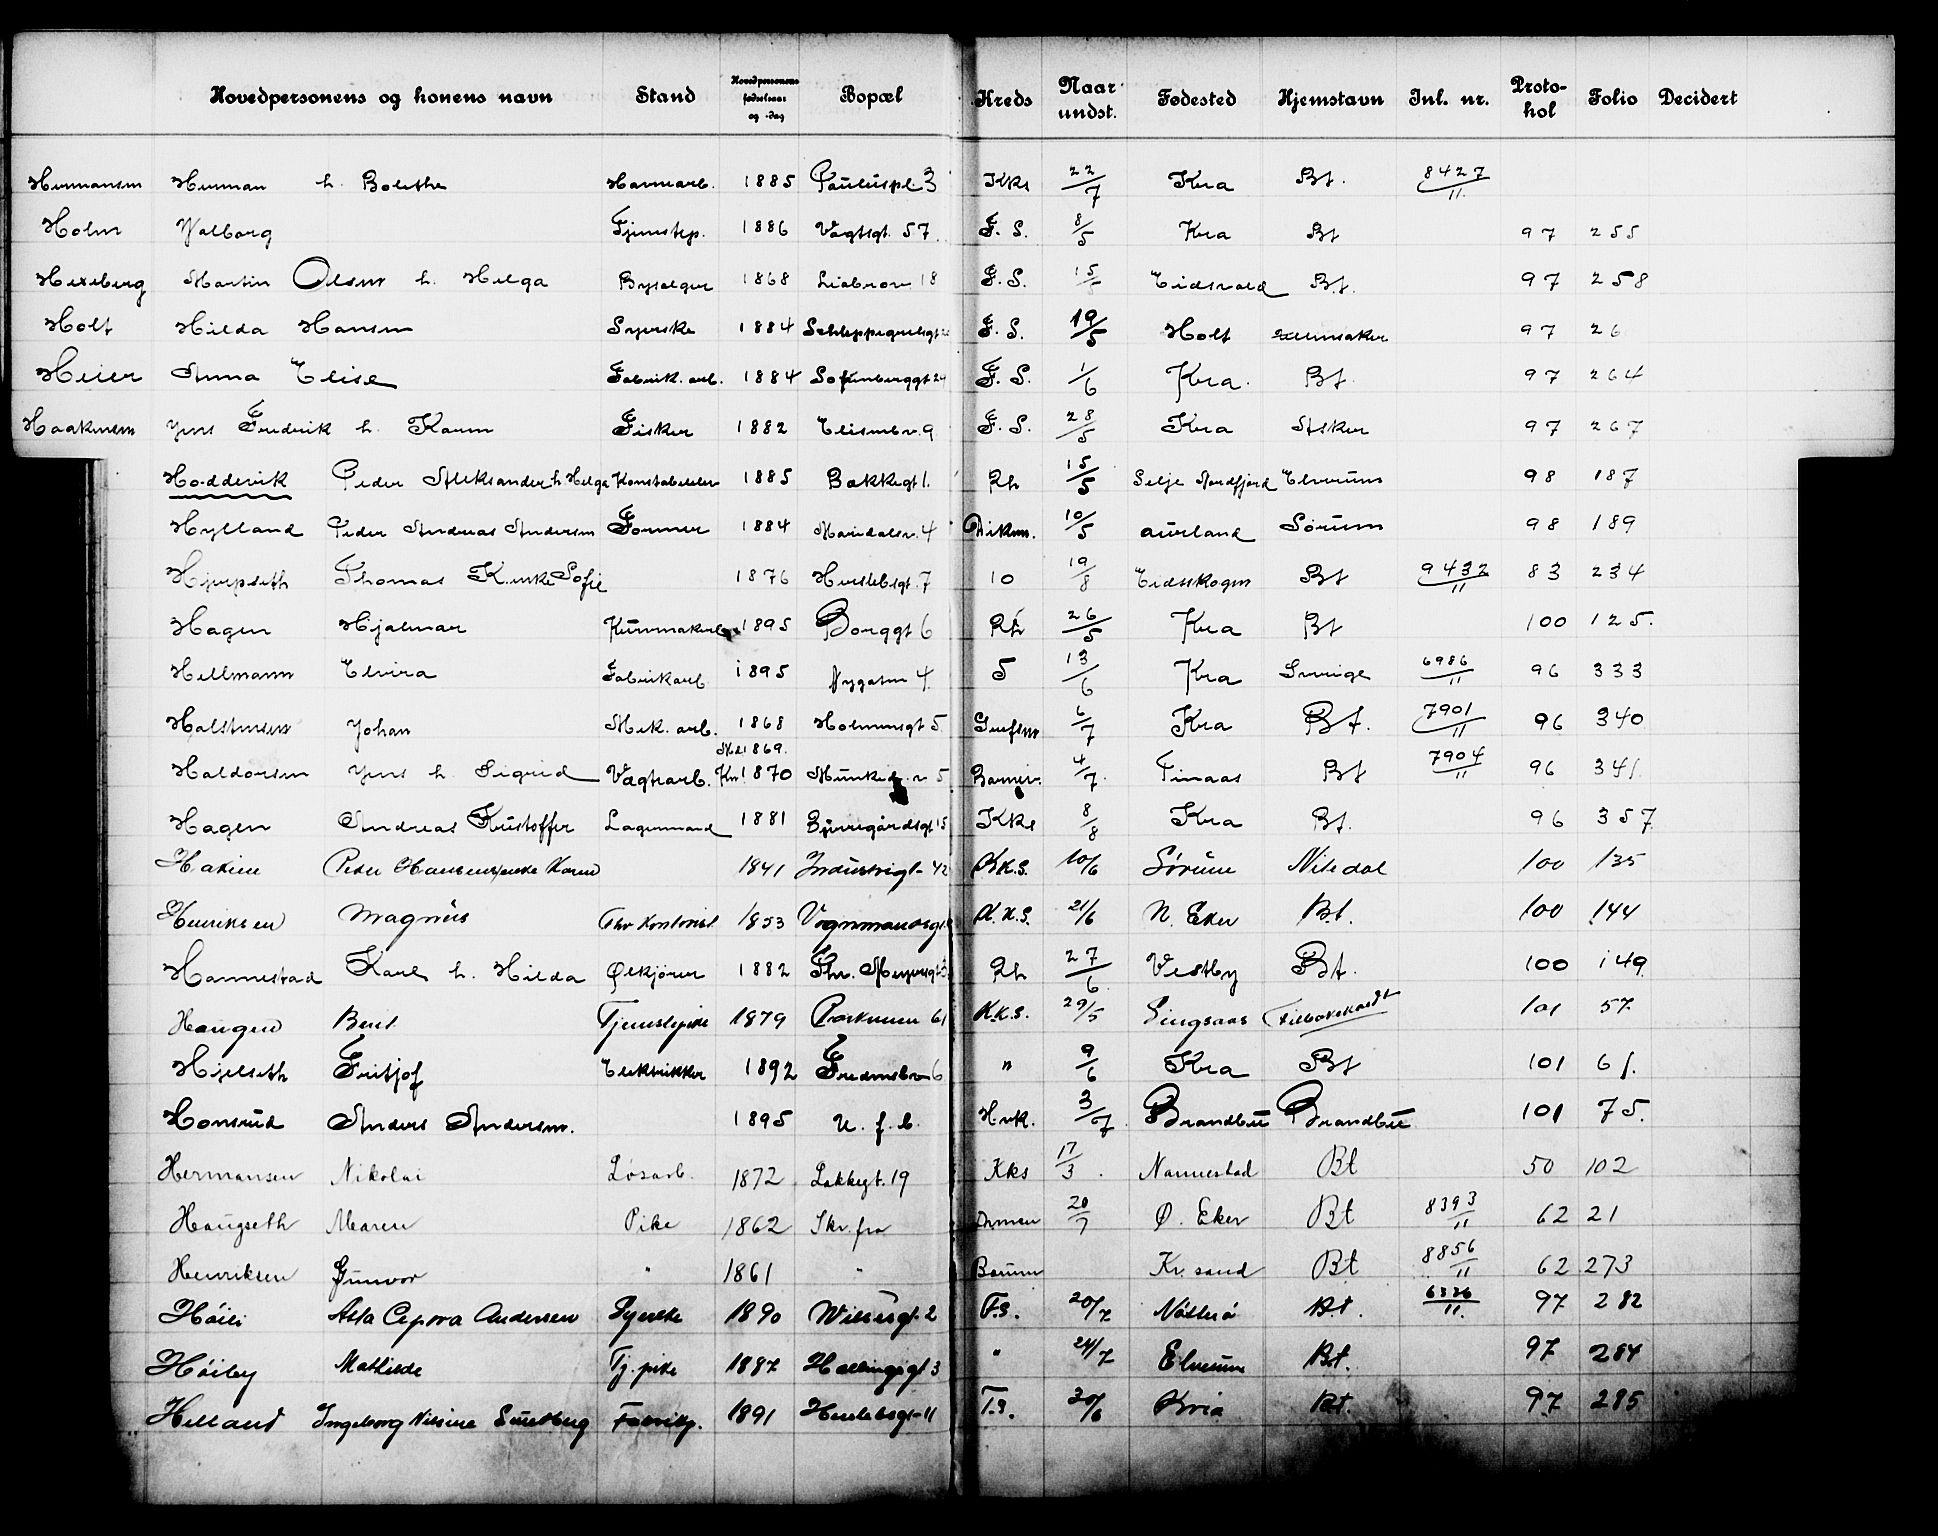 Hovedpersonens og konens navn Stand Hovedpersonens fødselsaar og -dag Bopæl Kreds Naar undst. Fødested Hjemstavn Inl. nr. Proto-kol Folio Decidert
Hermansen Herman h. Bolethe Havnearb. 1885 Pauluspl. 3 Kks 22/7 Kra Bt. 8427/11
Holm Valborg Tjenestep. 1886 Vogtsgt. 57 F. S. 8/5 Kra Bt 97 255
Hexeberg Martin Olsen h. Helga Bysælger 1868 Liabroen 18 F. S. 15/ Eidsvold Bt. 97 258
Holt Hilda Hansen Syerske 1884 Schleppegrellsgt F. S. 19/5 Holt Ullensaker 97 26
Heier Anna Elise Fabrik. arb. 1884 Sofienberggt 24 F. S. 1/6 Kra. Bt. 97 264
Haakensen Jens Frederik h. Karen Fisker 1882 Elisenb v. 9 F. S. 28/5 Kra Asker 97 267
Hoddevik Peder Aleksander h. Helga Konstabelelev 1885 Bakkegt 1. Rh 15/5 Selje Nordfjord Elverum 98 187
Hylland Peder Andreas Andersen Former 1884 Maridalsv. 4 Dikem. 10/5 Aurland Sørum 98 189
Hjerpseth Thomas K. enke Sofie 1876 Herslebsgt. 7 10 19/8 Eidsskogen Bt 9432/11 83 234
Hagen Hjalmar Kurvmakerl. 1895 Borggt 6 Rh 26/5 Kra Bt 100 125.
Hellmann Elvira Fabrikarb. 1895 Nygaten 4. 5 13/6 Kra Sverige 6986/11 96 333
Halstensen Johan Mek. arb. 1868 Holmensgt 5. Grefsen 6/7 Kra Bt. 7901/11 96 340
Haldorsen Jens h. Sigrid Vægtrarb. M. 1869. Kn. 1870 Munked. v 5 4/7. Finaas Bt 7904/11 96 341.
Hagen Andreas Kristoffer Lagermand 1881 Bjerregårdsgt 15 Kks 8/8 Kra Bt. 96 357.
Peder Hansens enke Karen 1841 Industrigt. 42 K.K.S. 10/6 Sørum Nitedal 100 135
Henriksen Magnus Fhv Kontorist 1853 Vognmandsgt. K.K.S. 21/6 N. Eker Bt. 100 144
Hannestad Karl h. Hilda Ølkjører 1882 Thv. Meyersgt Rh 27/6. Vestby Bt. 100 149.
Haugen Berit Tjenestepike 1879 Parkveien 61 K.K.S. 29/5 Singsaas 101 57.
Hjelseth Fritjof Elektrikker 1892 Fredensbv 6 " 9/6 Kra Bt 101 61.
Honsrud Anders Andersen. 1895 U. f. b. Hvk. 3/7. Brandbu Brandbu 101 75.
Hermansen Nikolai Løsarb. 1872 Lakkegt. 19 Kks 17/3. Nannestad Bt 50 102
Haugseth Maren Pike 1862 Skr. fra 20/7 Ø. Eker Bt 8393/11 62 21
Henriksen Gunvor " 1861 " Bærum Kr. sand Bt 8856/11 62 273
Høili Asta Cepora Andersen Syerske 1890 Wilsesgt. 2 F.S. 20/7 Nøtterø Bt. 6336/11. 97 282
Høiby Mathilde Tj. pike 1887 Hallingsgt 3 " 24/7 Elverum Bt. 97 284
Helland Ingeborg Nilsine Smedberg Fabrikp. 1891 Herslebsgt. 11 F.S. 30/6 Kria Bt. 97 285